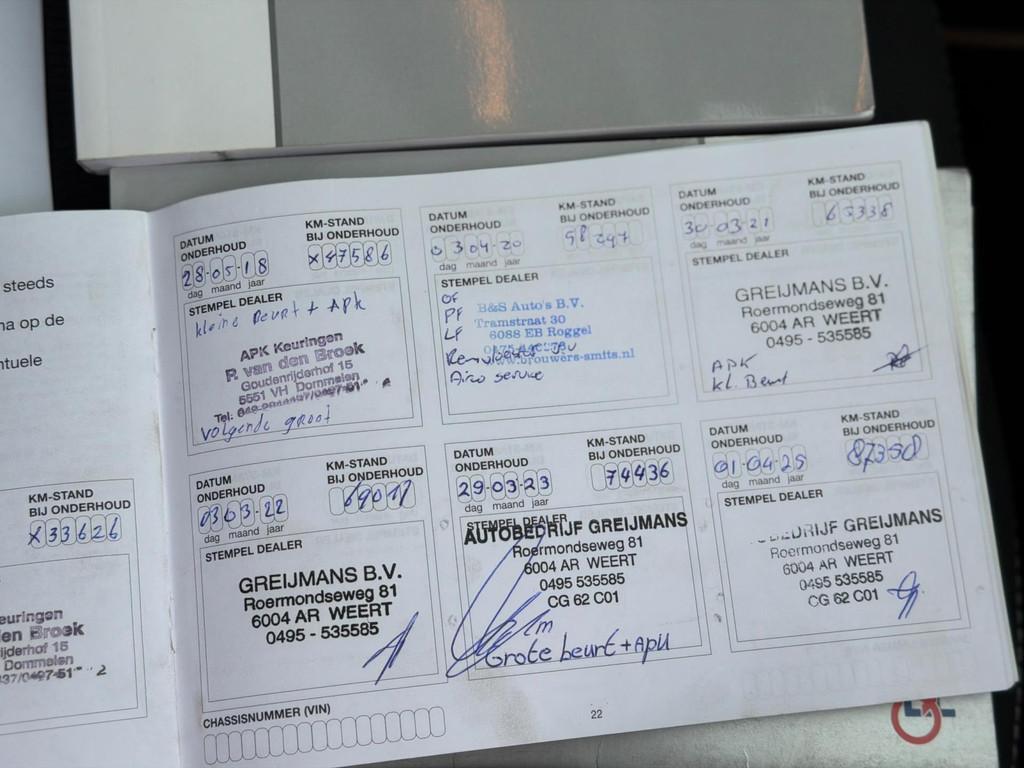 steeds
na op de
ntuele
KM-STAND
BIJ ONDERHOUD
x33626
euringen
en Broek
ijderhof 15
Dommelen
2
DATUM
ONDERHOUD
KM-STAND
BIJ ONDERHOUD
28-05-18
x47586
dag maand jaar
STEMPEL DEALER
kleine Beurt + Apk
APK Keuringen
P. van den Broek
Goudenrijderhof 15
5551 VH Dommelen
Tel:
volgende groot
DATUM
ONDERHOUD
KM-STAND
BIJ ONDERHOUD
03 04-20
dag maand jaar
STEMPEL DEALER
OF
PF
LF
B&S Auto's B.V.
Tramstraat 30
6088 EB Roggel
www.brouwers-smits.nl
Airco service
DATUM
ONDERHOUD
KM-STAND
BIJ ONDERHOUD
30-03-21
63338
dag maand jaar
STEMPEL DEALER
GREIJMANS B.V.
Roermondseweg 81
6004 AR WEERT
0495 - 535585
APK
kl. Beurt
DATUM
ONDERHOUD
KM-STAND
BIJ ONDERHOUD
0303-22
69017
dag maand jaar
STEMPEL DEALER
GREIJMANS B.V.
Roermondseweg 81
6004 AR WEERT
0495 - 535585
DATUM
ONDERHOUD
KM-STAND
BIJ ONDERHOUD
29-03-23
74436
dag maand jaar
STEMPEL DEALER
AUTOBEDRIJF GREIJMANS
Roermondseweg 81
6004 AR WEERT
0495 535585
CG 62 C01
Grote beurt + APK
DATUM
ONDERHOUD
KM-STAND
BIJ ONDERHOUD
01-04-25
87350
dag maand jaar
STEMPEL DEALER
OBEDRIJF GREIJMANS
Roermondseweg 81
6004 AR WEERT
0495 535585
CG 62 C01
CHASSISNUMMER (VIN)
22